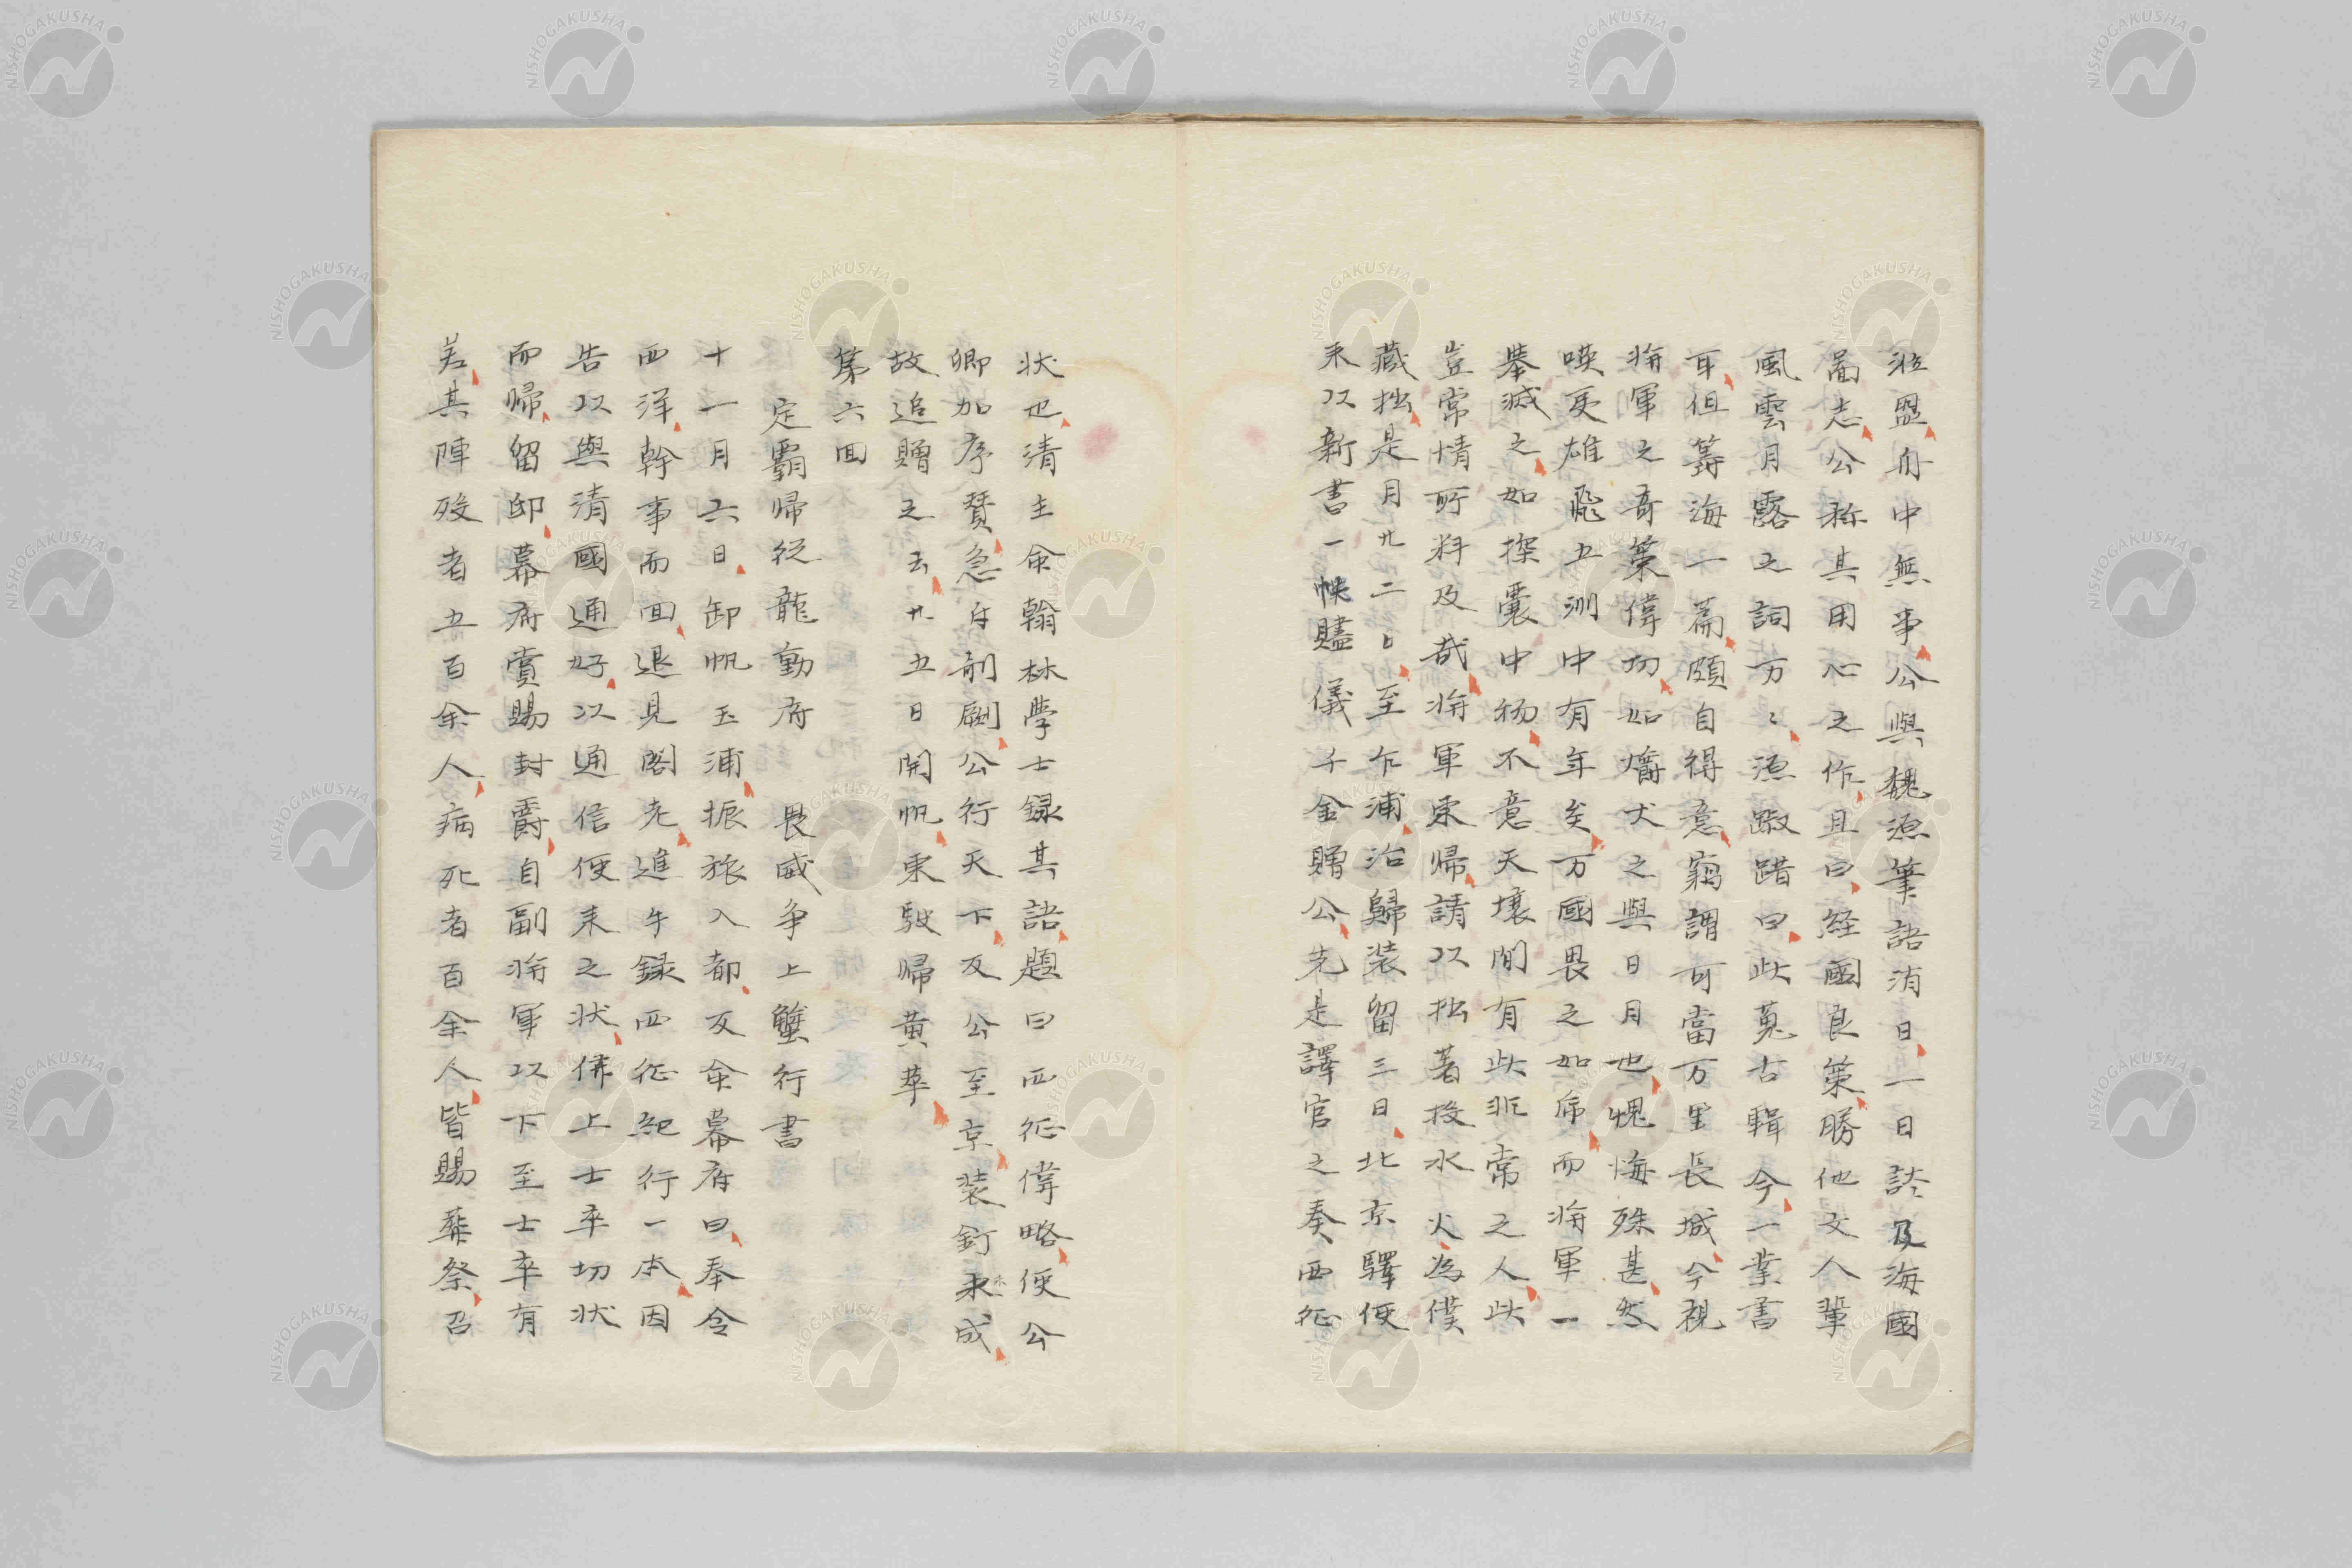 涖盟舟中無事公與魏源筆語消日一日談及海國
圖志公称其用心之作且曰経國良策勝他文人輩
風雲月露之詞万々源踧踖曰此蒐古輯今一業書
耳但籌海一篇頗自得意竊謂可當万里長城今視
将軍之奇策偉功如爝火之與日月也愧悔殊甚然
唊更雄飛五洲中有年矣万國畏之如帝而将軍一
挙滅之如探囊中物不意天壤間有此非常之人此
豈常情所料及哉将軍東帰請以拙著投水火為僕
藏拙是月廿二日至乍浦治歸装留三日北京驛使
来以新書一帙贐儀千金贈公先是譯官之奏西征
状也清主命翰林學士録其語題曰西征偉略使公
卿加序賛急付剞劂公行天下及公至京装釘未成
故追贈之云廿五日開帆東駛帰黄華
第六回
定覇帰従龍動府 畏威争上蟹行書
十一月六日卸帆玉浦振旅入都反命幕府曰奉令
西洋幹事而回退見閣老進午録西征紀行一本因
告以與清國通好以通信使来之状併上士卒功状
而帰留邸幕府賞賜封爵自副将軍以下至士卒有
差其陣歿者五百余人病死者百余人皆賜葬祭召
NISHOGAKUSHA